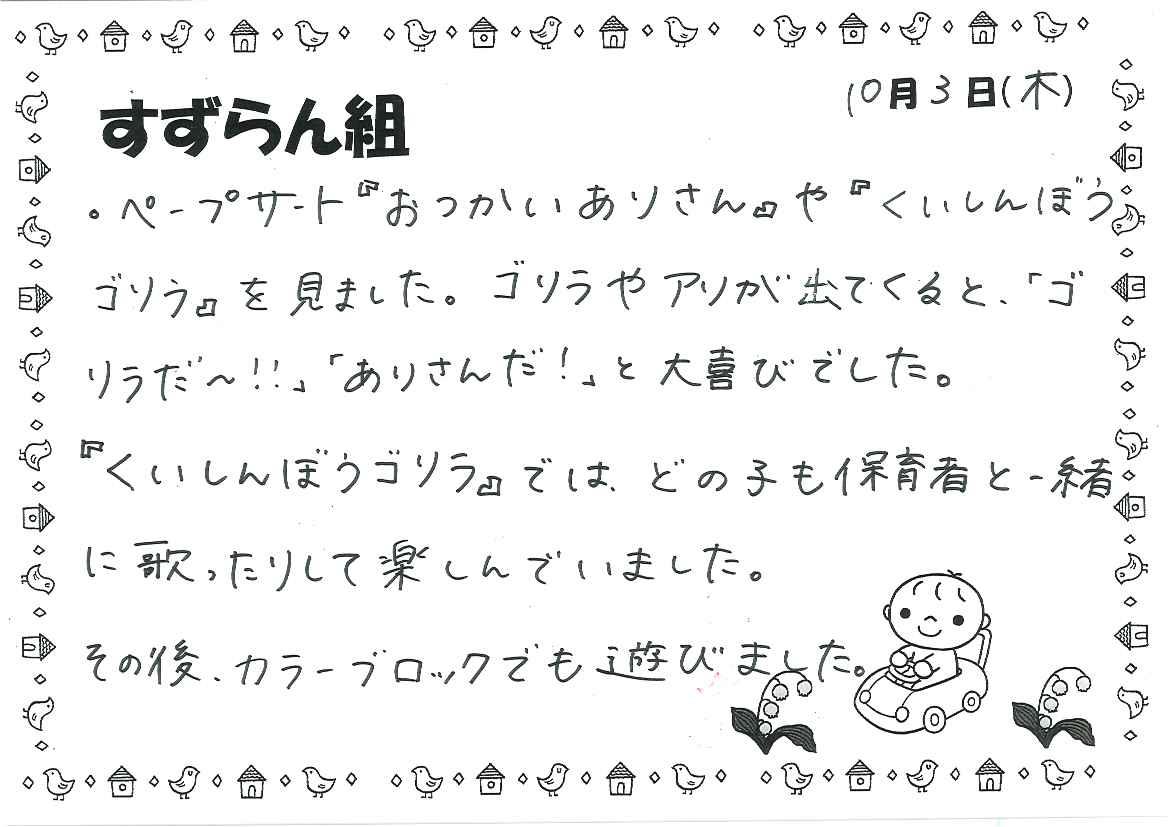 すずらん組
10月3日(木)
。ペープサート『おつかいありさん』や『くいしんぼう
ゴリラ』を見ました。ゴリラやアリが出てくると、「ゴ
リラだ～!!」「ありさんだ!」と大喜びでした。
『くいしんぼうゴリラ』では、どの子も保育者と一緒
に歌ったりして楽しんでいました。
その後、カラーブロックでも遊びました。